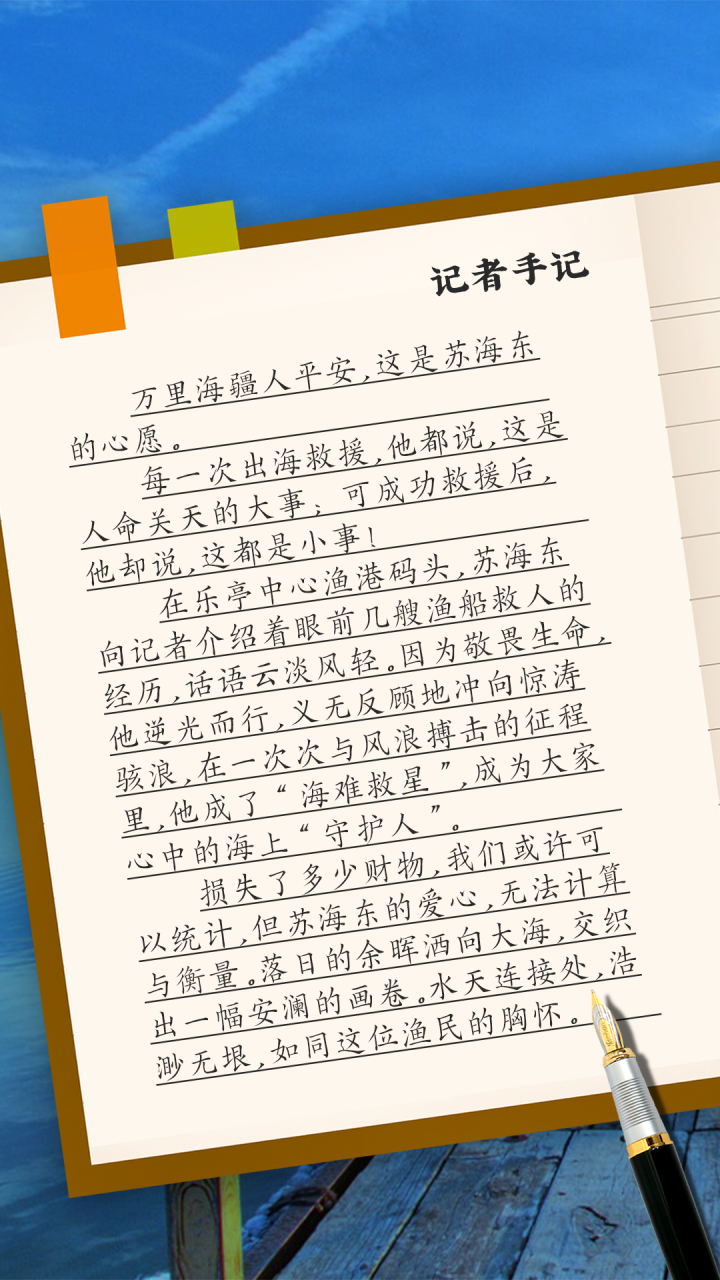 记者手记
万里海疆人平安,这是苏海东
的心愿。
每一次出海救援,他都说,这是
人命关天的大事；可成功救援后,
他却说,这都是小事!
在乐亭中心渔港码头,苏海东
向记者介绍着眼前几艘渔船救人的
经历,话语云淡风轻。因为敬畏生命,
他逆光而行,义无反顾地冲向惊涛
骇浪,在一次次与风浪搏击的征程
里,他成了“海难救星”,成为大家
心中的海上“守护人”。
损失了多少财物,我们或许可
以统计,但苏海东的爱心,无法计算
与衡量。落日的余晖洒向大海,交织
出一幅安澜的画卷。水天连接处,浩
渺无垠,如同这位渔民的胸怀。